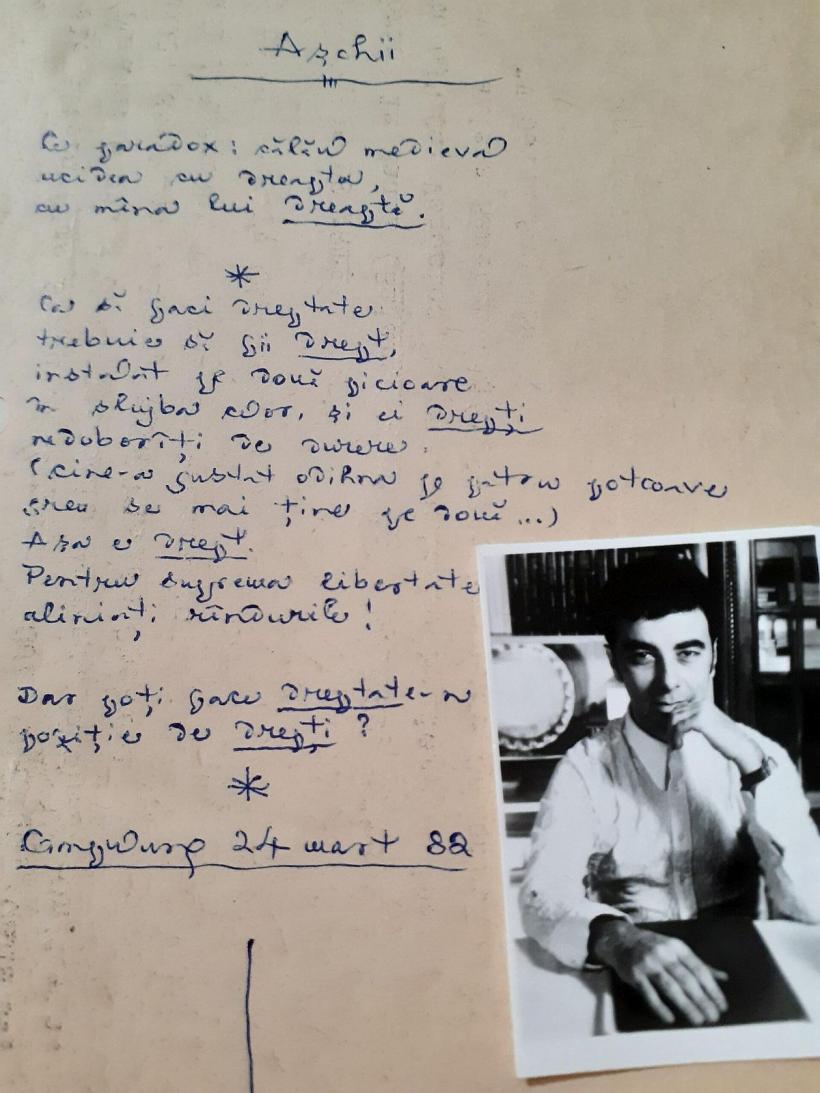 Așchii
Ce paradox: călău medieval
ucidea cu dreapta,
cu mîna lui dreaptă.
*
Ca să faci dreptate
trebuie să fii drept,
instalat pe două picioare
în slujba celor, și ei drepți
nedoborîți de durere.
(cine-a gustat odihna pe patru potcoave
greu se mai ține pe două...)
Așa e drept.
Pentru suprema libertate
aliniați rîndurile!
Dar poți face dreptate-n
poziție de drepți?
*
Cîmpulung 24 mart 82